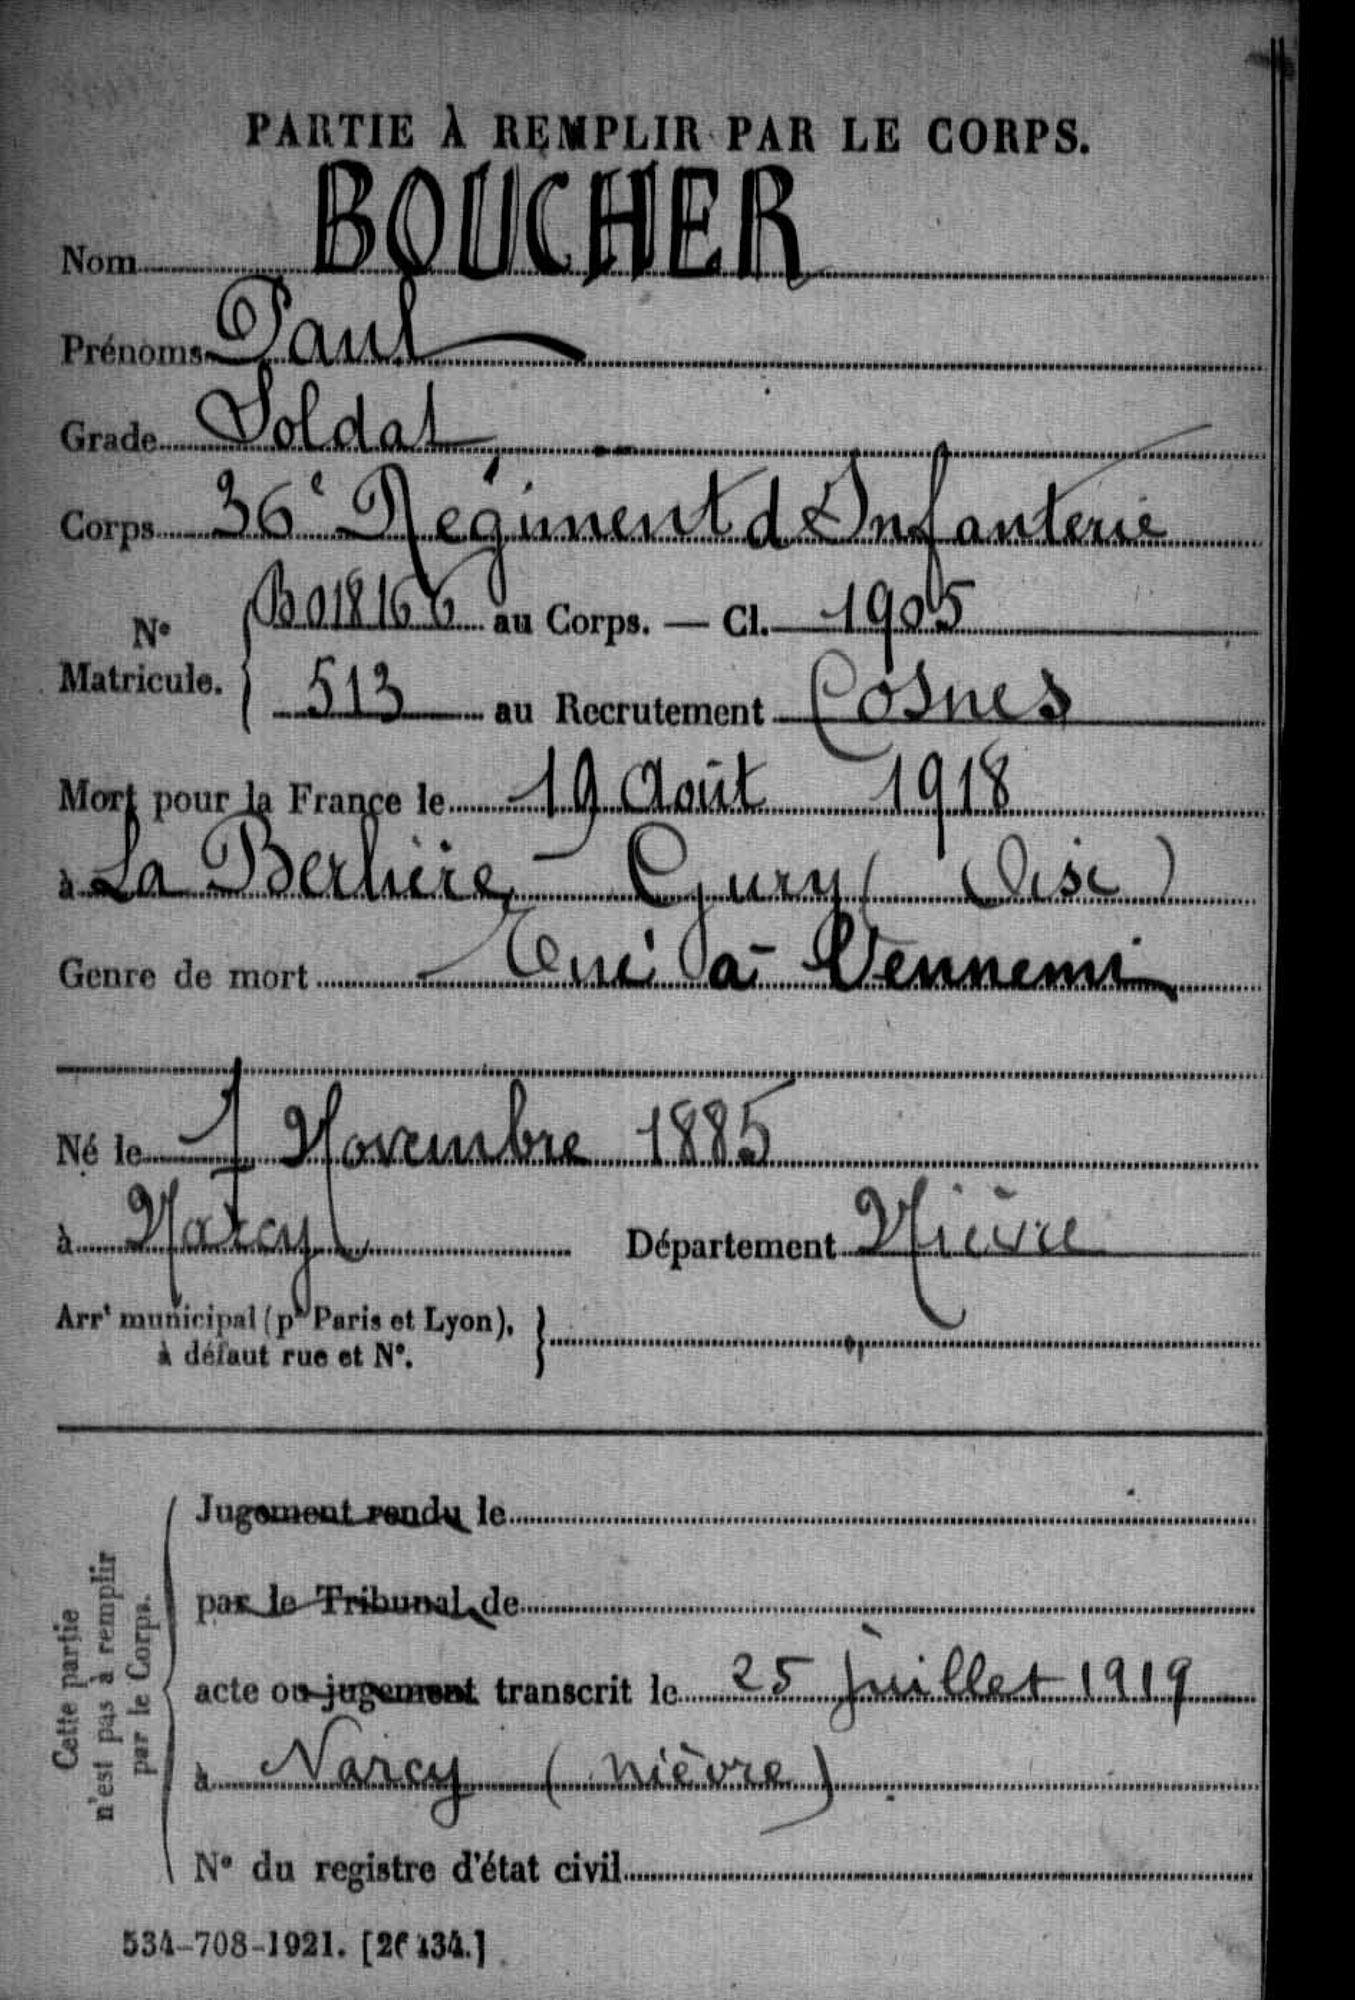 PARTIE À REMPLIR PAR LE CORPS.
Nom BOUCHER
Prénoms Paul
Grade Soldat
Corps 36e Régiment d'Infanterie
No Matricule. { B018166 au Corps. — Cl. 1905
513 au Recrutement Cosnes
Mort pour la France le 19 Août 1918
à La Berlière Gury (Oise)
Genre de mort Tué à l'ennemi
Né le 7 Novembre 1885
à Narcy Département Nièvre
Arrt municipal (pr Paris et Lyon), }
à défaut rue et No.
Cette partie n'est pas à remplir par le Corps.
Jugement rendu le
par le Tribunal de
acte ou jugement transcrit le 25 juillet 1919
à Narcy (nièvre)
No du registre d'état civil
534-708-1921. [26434.]